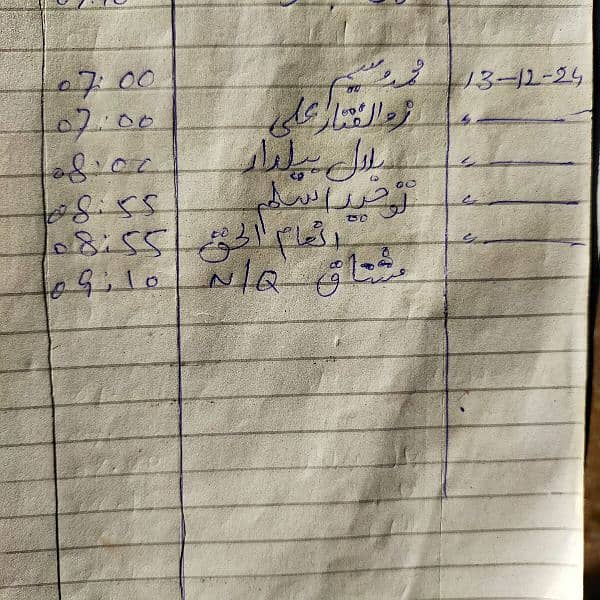 13-12-24 محمد وسیم 07:00
〃 ذوالفقار علی 07:00
〃 بلال بیلدار 08:00
〃 توحید اسلم 08:55
〃 انعام الحق 08:55
مشتاق N/Q 09:10